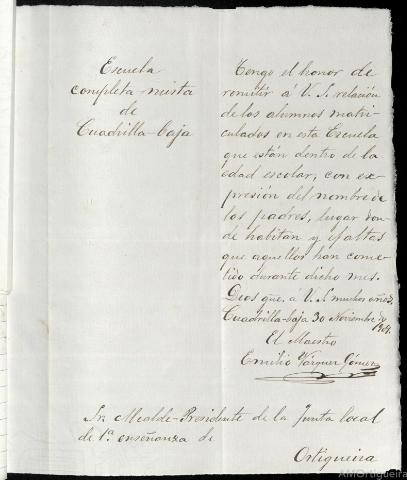 Escuela
completa-mista
de
Cuadrilla-baja
Tengo el honor de
remitir á V. S. relación
de los alumnos matri-
culados en esta Escuela
que están dentro de la
edad escolar, con ex-
presión del nombre de
los padres, lugar don-
de habitan y faltas
que aquellos han come-
tido durante dicho mes.
Dios gue. á V. S. muchos años.
Cuadrilla-baja 30 Noviembre
El Maestro
Emilio Vázquez Gómez
Sr. Alcalde-Presidente de la Junta local
de 1ª enseñanza de
Ortigueira
AMOrtigueira